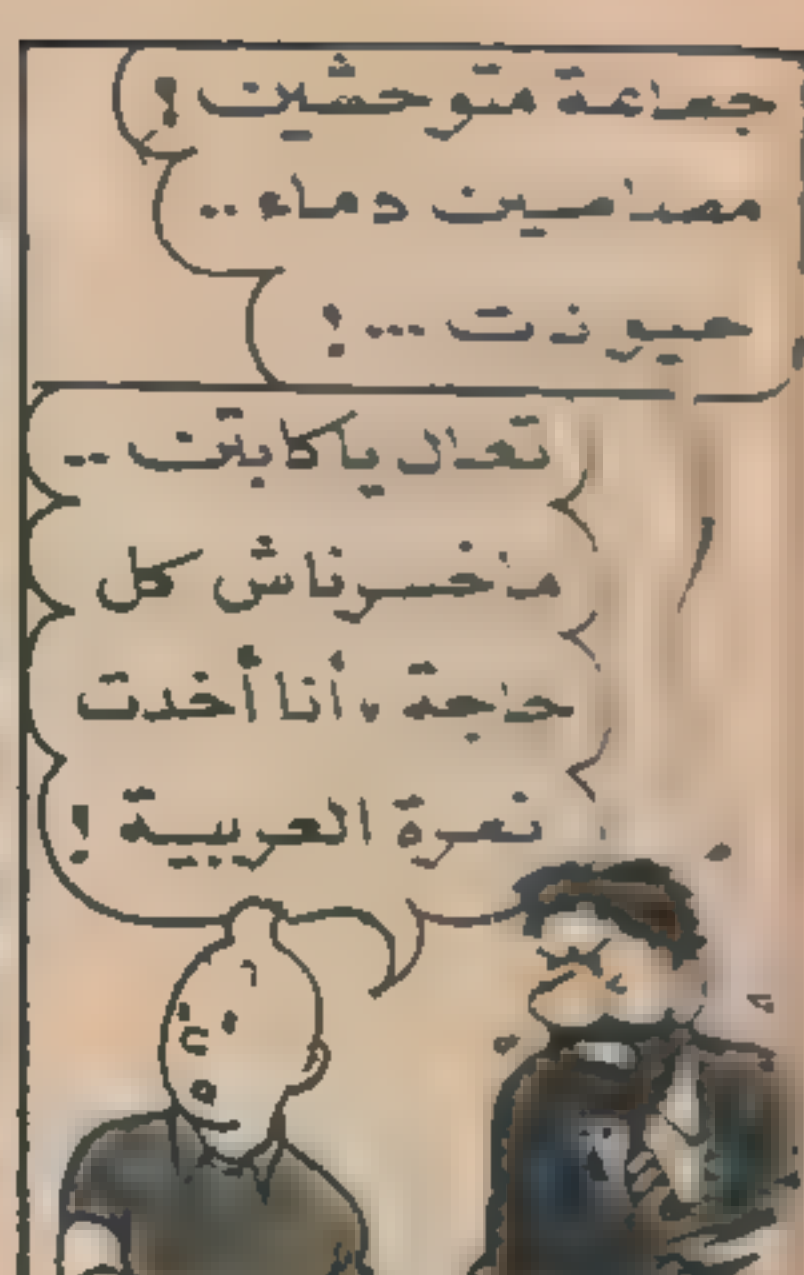 جماعة متوحشين !
مصاصين دماء ..
حيونات ... !
تعال يا كابتن ..
مخسرناش كل
حاجة ، أنا أخدت
نمرة العربية !